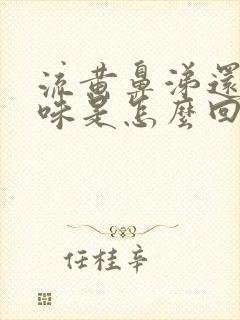 流黄鼻涕還
味是怎麼回
任桂辛